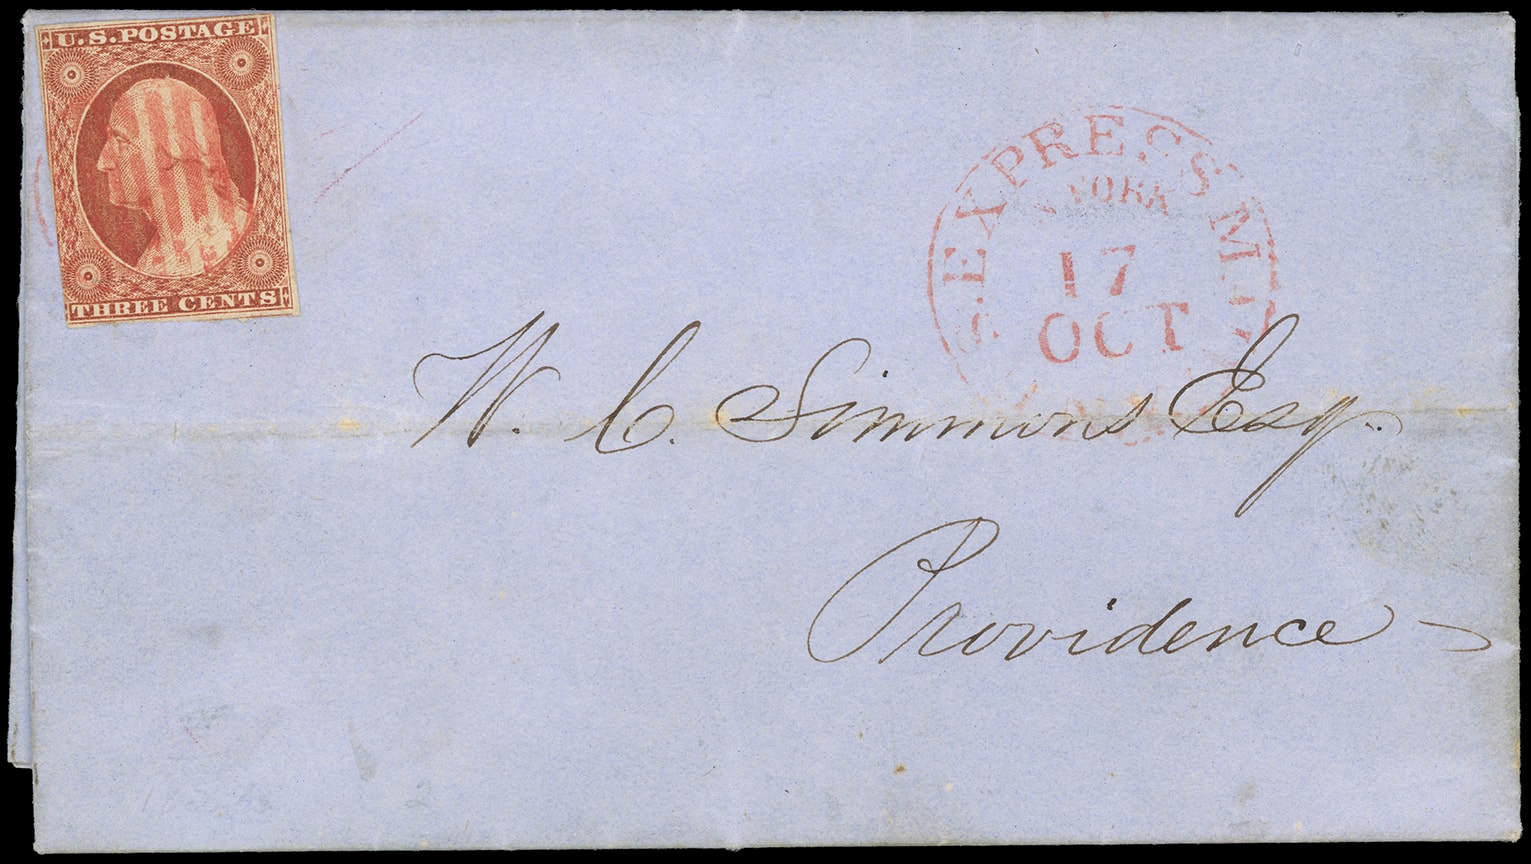 U.S. POSTAGE
THREE CENTS
EXPRESS MAIL
YORK
17
OCT
W. C. Simmons Esq.
Providence